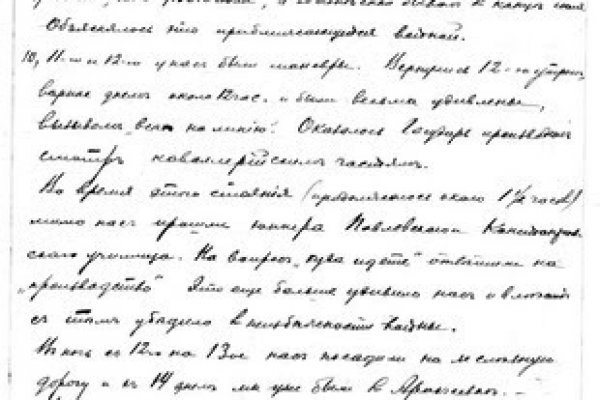 Объяснялось это приближающейся войной.
10, 11-го и 12-го у нас были маневры. Вернулись 12-го утром,
вернее днем около 12 час. и были весьма удивлены,
вызывом „всех на линию“. Оказалось Государь производил
смотр кавалерийским частям.
Во время этого стояния (продолжалось около 1½ часов)
мимо нас прошли юнкера Павловского
ского училища. На вопрос „куда идете“ ответили на
„производство“ Это еще больше удивило нас и
с тем убедило в неизбежности войны.
В ночь с 12-го на 13-ое нас посадили на железную
дорогу и 14 днем мы уже были в